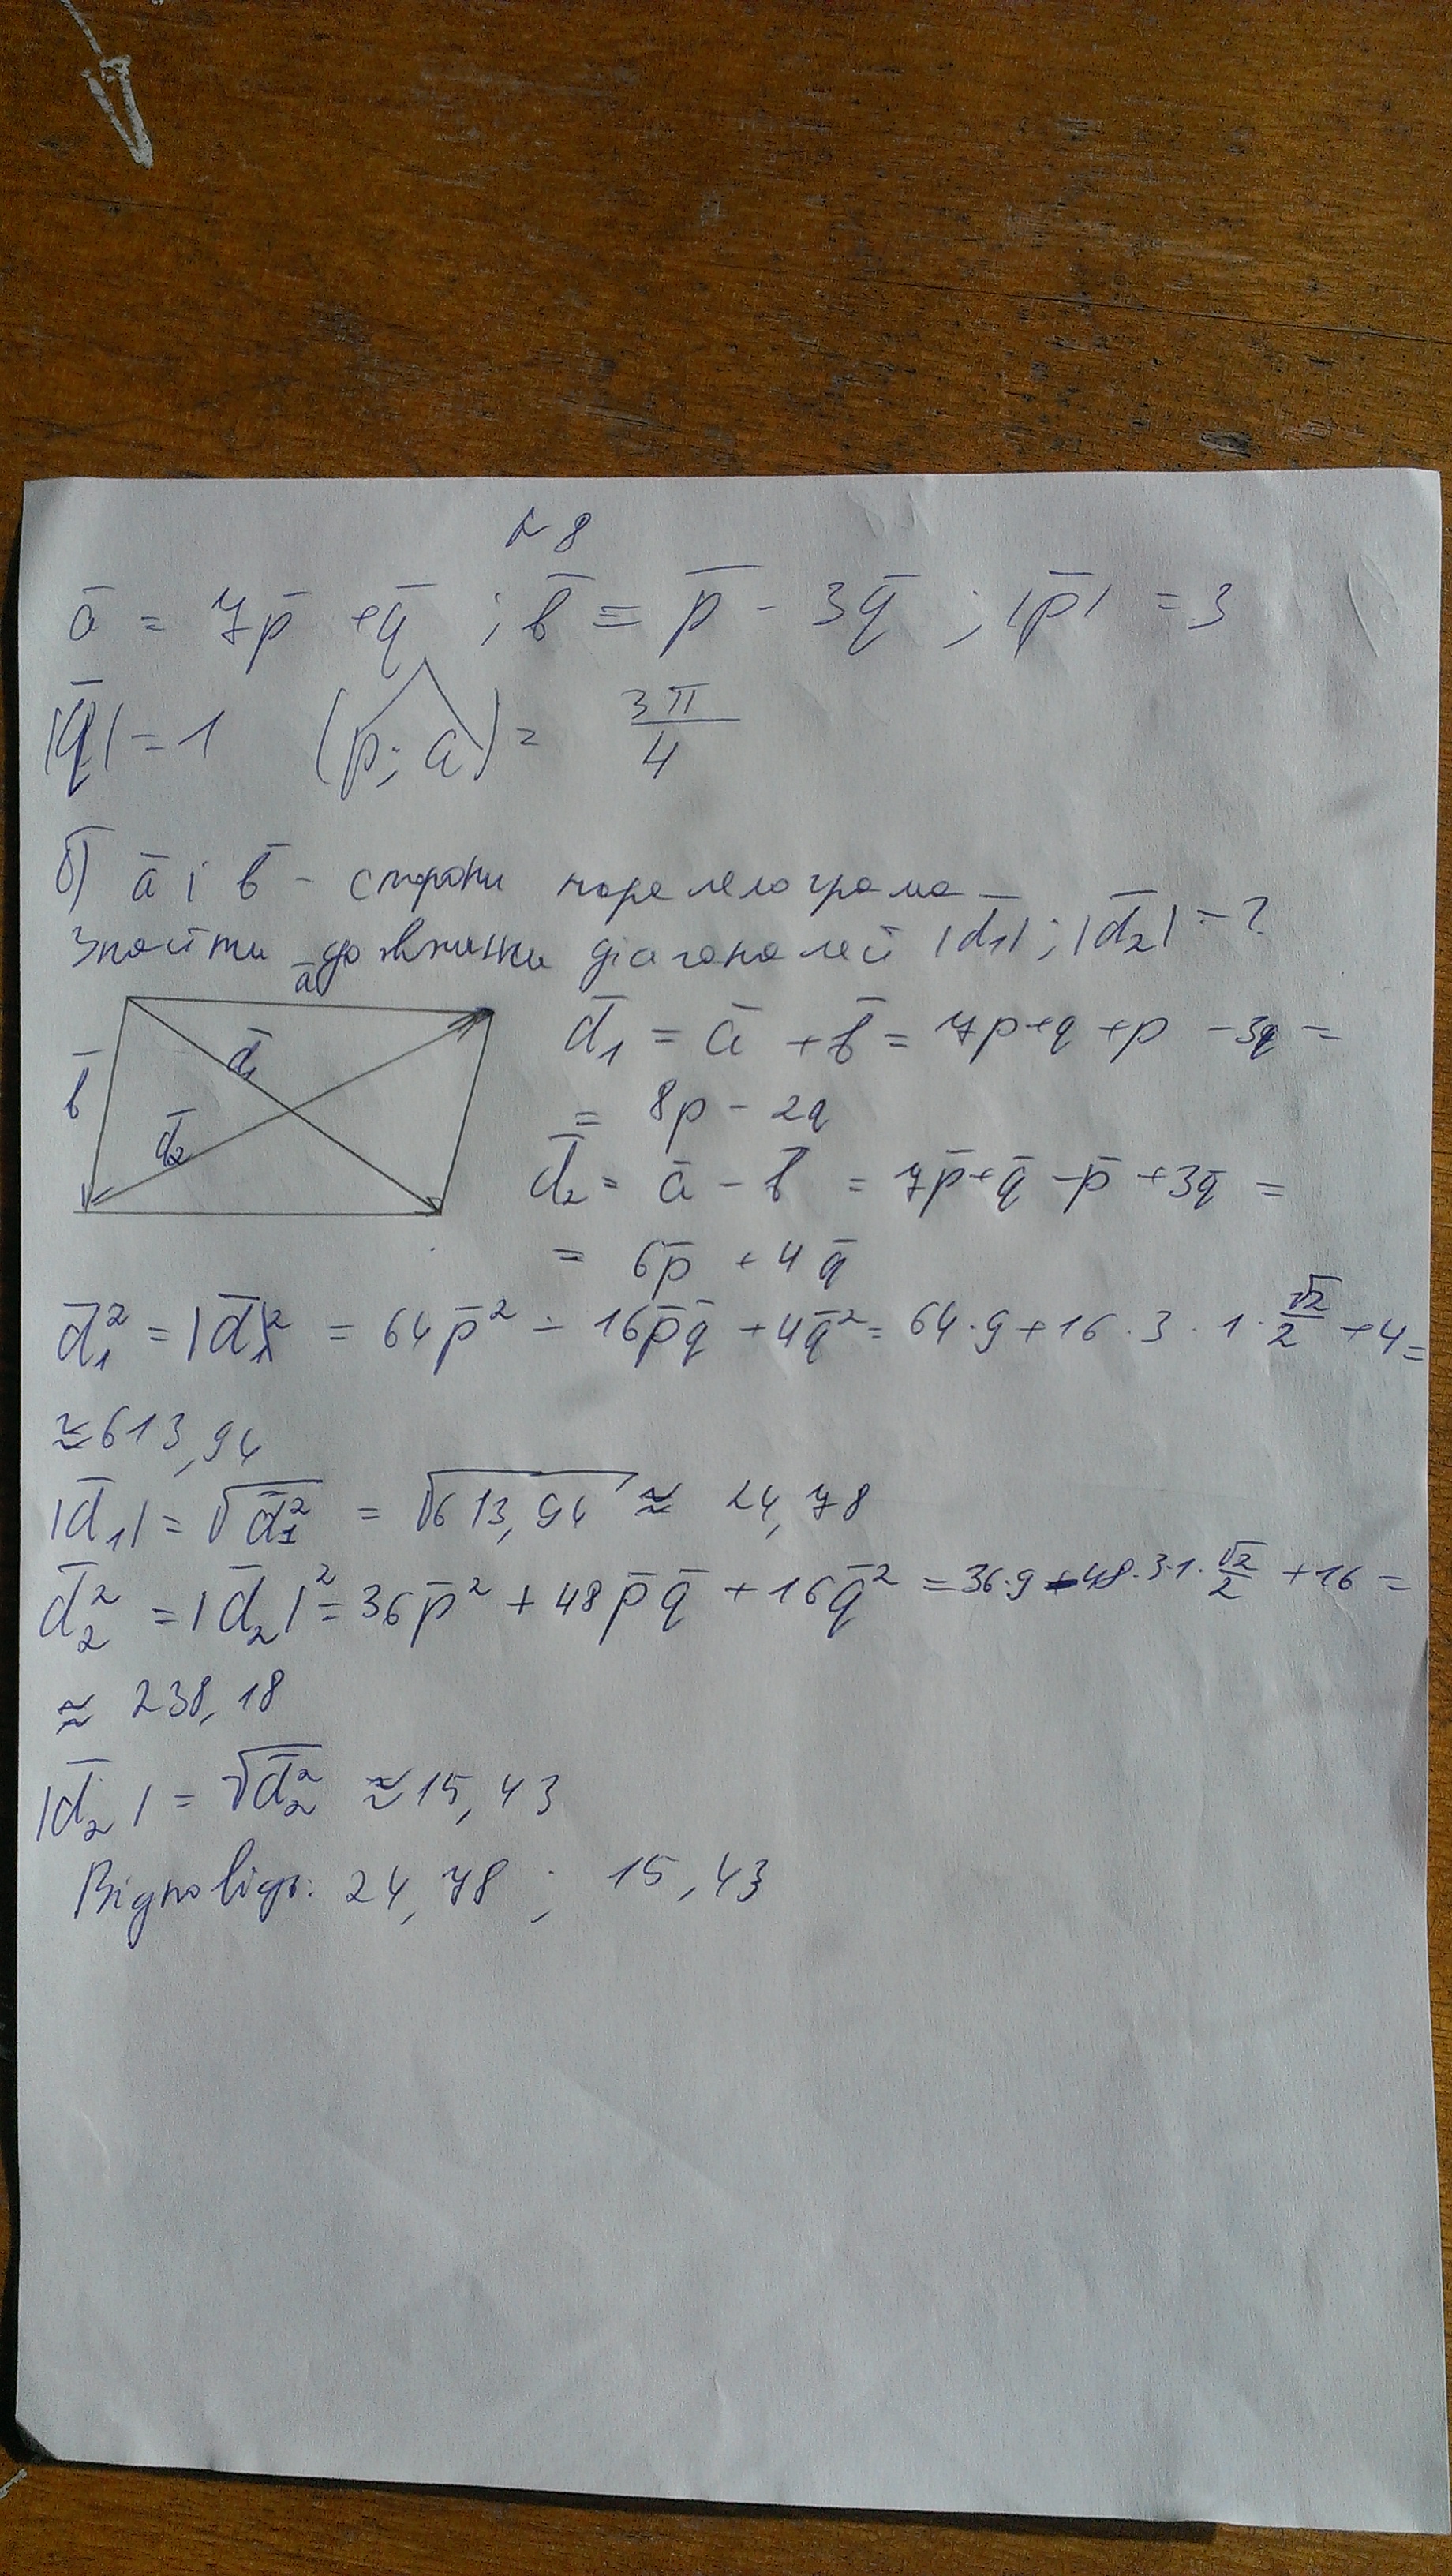 № 8
ā = 7p̄ + q̄ ; b̄ = p̄ - 3q̄ ; |p̄| = 3
|q̄| = 1 (p; q) = 3π/4
б) ā і b̄ - сторони паралелограма
Знайти довжини діагоналей |d̄₁| ; |d̄₂| - ?
ā
b̄ d̄₁
d̄₂
d̄₁ = ā + b̄ = 7p+q +p - 3q =
= 8p - 2q
d̄₂ = ā - b̄ = 7p̄+q̄ -p̄ +3q̄ =
= 6p̄ + 4q̄
d̄₁² = |d̄₁|² = 64p̄² - 16p̄q̄ + 4q̄² = 64·9 + 16·3·1·√2/2 + 4 =
≈ 613,94
|d̄₁| = √d̄₁² = √613,94 ≈ 24,78
d̄₂² = |d̄₂|² = 36p̄² + 48p̄q̄ + 16q̄² = 36·9 - 48·3·1·√2/2 + 16 =
≈ 238,18
|d̄₂| = √d̄₂² ≈ 15,43
Відповідь: 24,78 ; 15,43